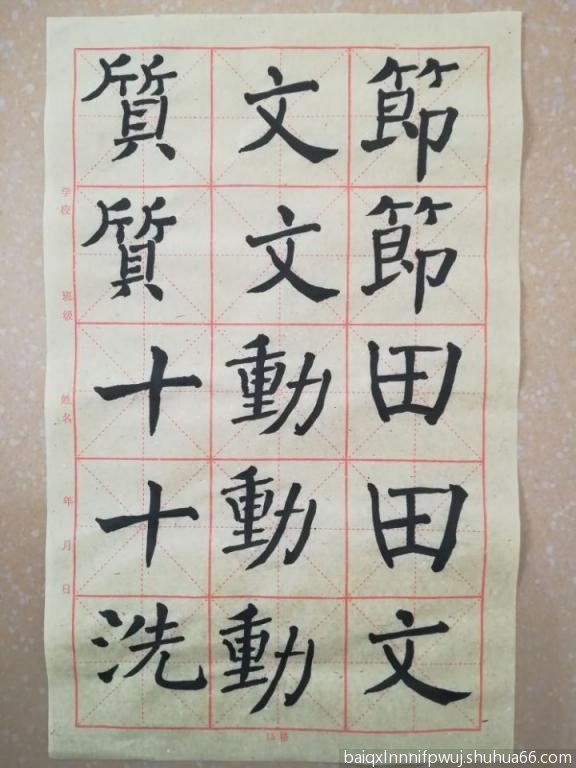 節節田田文
文文動動動
質質十十洗
学校 班级 姓名 年 月 日
15格
baiqxlnnnifpwuj.shuhua66.com